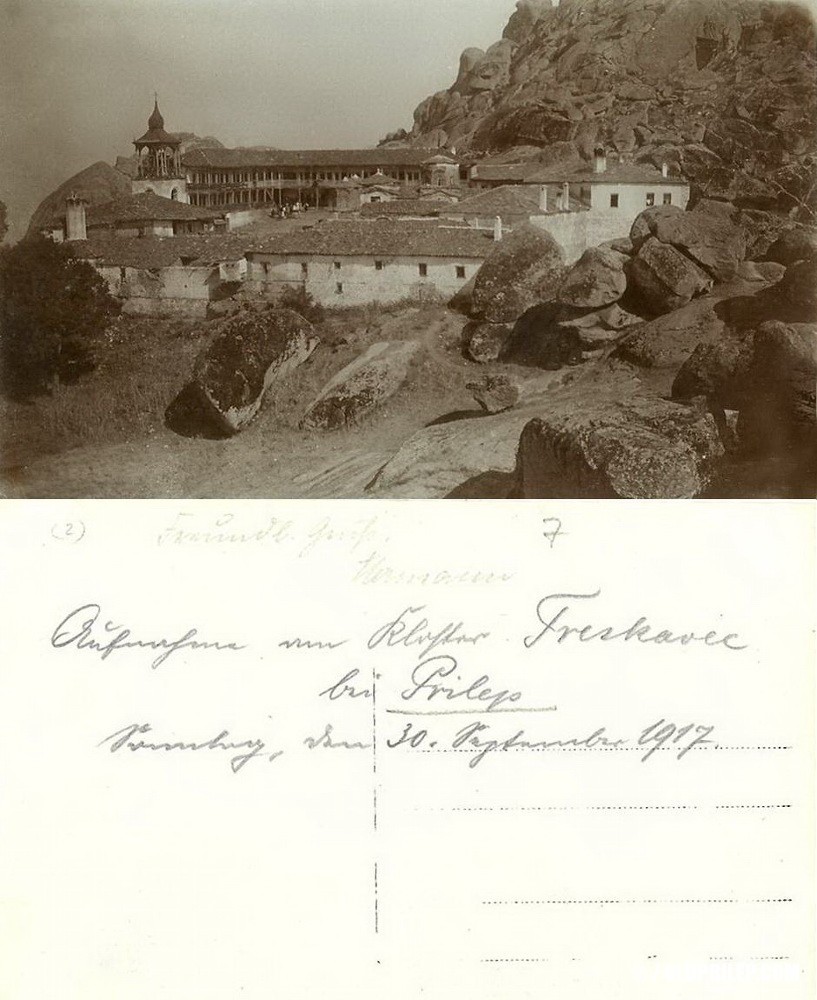 (2) Freundl. Gruß. 7
Hermann
Aufnahme am Kloster Treskavec
bei Prilep
Sonntag, den 30. September 1917.